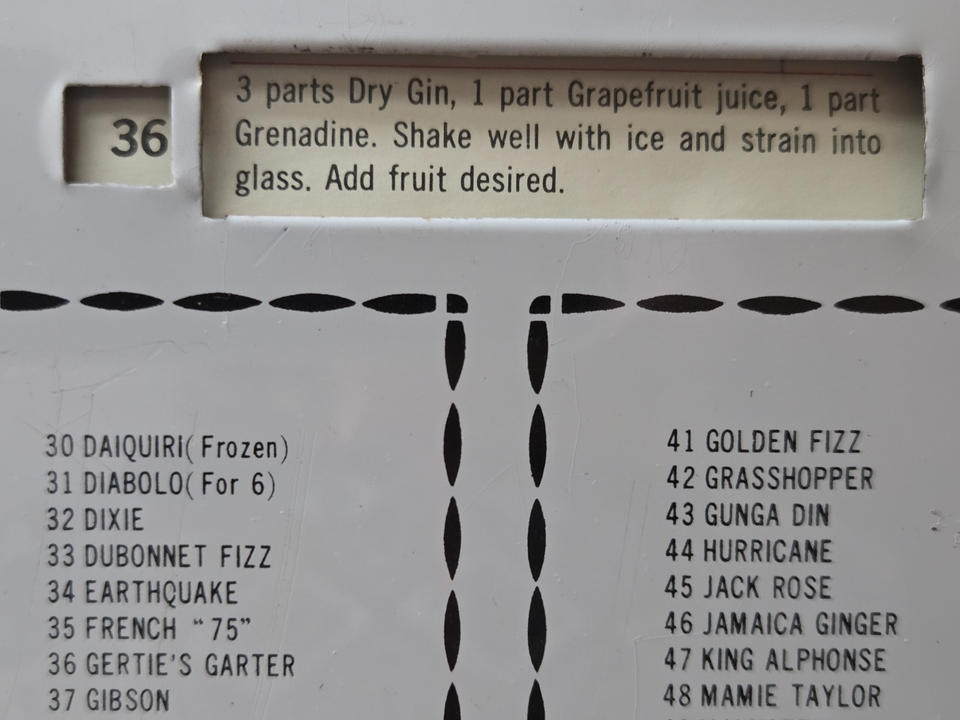 36
3 parts Dry Gin, 1 part Grapefruit juice, 1 part
Grenadine. Shake well with ice and strain into
glass. Add fruit desired.
30 DAIQUIRI( Frozen)
31 DIABOLO( For 6)
32 DIXIE
33 DUBONNET FIZZ
34 EARTHQUAKE
35 FRENCH “75”
36 GERTIE'S GARTER
37 GIBSON
41 GOLDEN FIZZ
42 GRASSHOPPER
43 GUNGA DIN
44 HURRICANE
45 JACK ROSE
46 JAMAICA GINGER
47 KING ALPHONSE
48 MAMIE TAYLOR